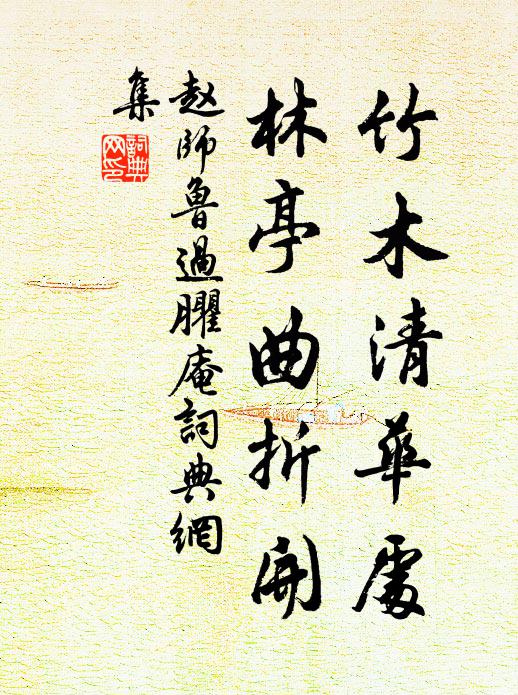 竹木清華處
林亭曲折開
趙師魯過臞庵詞典網
集
詞典網印